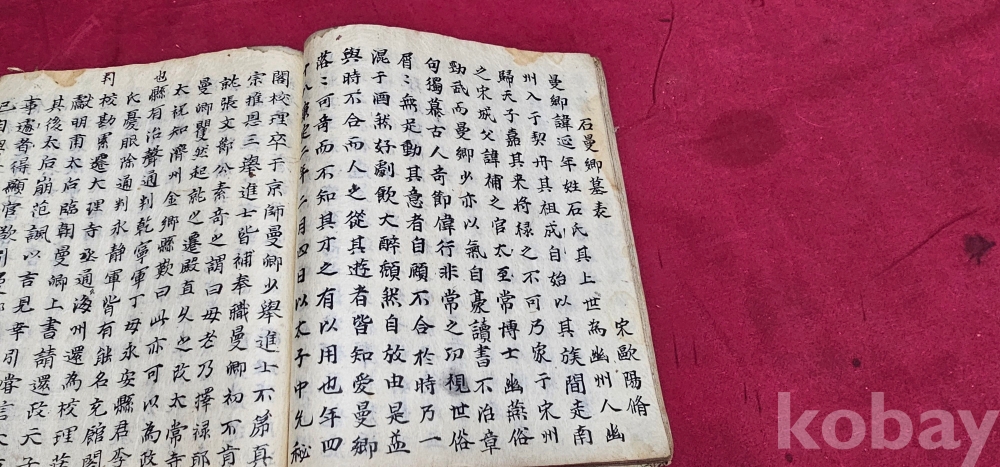 石曼卿墓表
宋歐陽脩
曼卿諱延年姓石氏其上世為幽州人幽
州入于契丹其祖成自始以其族間走南
歸天子嘉其来将禄之不可乃家于宋州
之宋城父諱補之官太至常博士幽燕俗
勁武而曼卿少亦以氣自豪讀書不治章
句獨慕古人奇節偉行非常之功視世俗
屑〻無足動其意者自顧不合於時乃一
混于酒然好劇飲大醉頹然自放由是益
與時不合而人之從其遊者皆知愛曼卿
落〻可奇而不知其才之有以用也年四
十八康定二年二月四日以太子中允秘
閣校理卒于京師曼卿少舉進士不苐真
宗推恩三舉進士皆補奉職曼卿初不肯
就張文節公素奇之謂曰母老乃擇禄耶
曼卿矍然起就之遷殿直久之改太常寺
太祝知濟州金鄉縣歎曰此亦可以為政
也縣有治聲通判乾寧軍丁母永安縣君李
氏憂服除通判永静軍皆有能名充館閣
判
校勘累遷大理寺丞通海州還為校理莊
獻明肅太后臨朝曼卿上書請還政天子
其後太后崩范諷以言見幸引嘗言太
事遽者得顯官欲引
已自
kobay